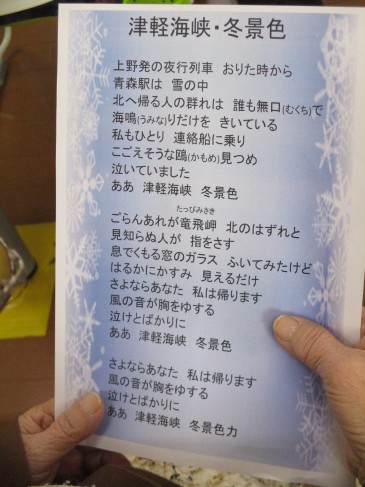 津軽海峡・冬景色
上野発の夜行列車 おりた時から
青森駅は 雪の中
北へ帰る人の群れは 誰も無口(むくち)で
海鳴(うみな)りだけを きいている
私もひとり 連絡船に乗り
こごえそうな鴎(かもめ)見つめ
泣いていました
ああ 津軽海峡 冬景色
たっぴみさき
ごらんあれが竜飛岬 北のはずれと
見知らぬ人が 指をさす
息でくもる窓のガラス ふいてみたけど
はるかにかすみ 見えるだけ
さよならあなた 私は帰ります
風の音が胸をゆする
泣けとばかりに
ああ 津軽海峡 冬景色
さよならあなた 私は帰ります
風の音が胸をゆする
泣けとばかりに
ああ 津軽海峡 冬景色力